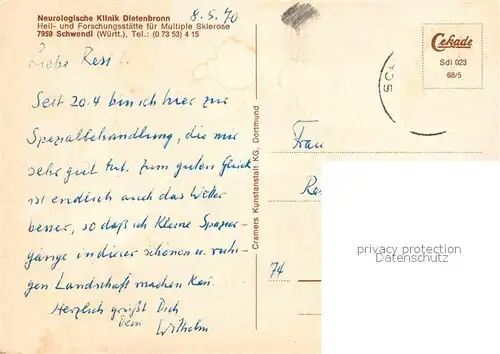 Neurologische Klinik Dietenbronn
Heil- und Forschungsstätte für Multiple Sklerose
7959 Schwendi (Württ.), Tel.: (0 73 53) 4 15
8.5.70
Liebe Resi!
Seit 20.4 bin ich hier zur
Spezialbehandlung, die mir
sehr gut tut. Zum guten Glück
ist endlich auch das Wetter
besser, so daß ich kleine Spazier-
gänge in dieser schönen u. ruhi-
gen Landschaft machen kan.
Herzlich grüßt Dich
Dein Wilhelm
Cramers Kunstanstalt KG, Dortmund
Cekade
Sdl 023
68/5
SC
Frau
Re
74
privacy protection
Datenschutz